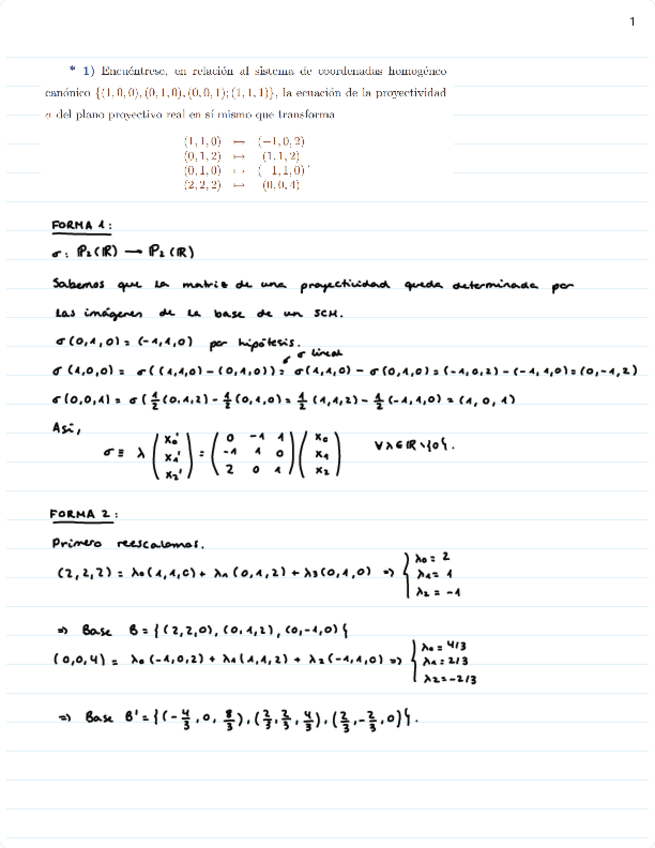 1
* 1) Encuéntrese, en relación al sistema de coordenadas homogéneo
canónico {(1, 0, 0), (0, 1, 0), (0, 0, 1); (1, 1, 1)}, la ecuación de la proyectividad
σ del plano proyectivo real en sí mismo que transforma
(1, 1, 0) ↦ (−1, 0, 2)
(0, 1, 2) ↦ (1, 1, 2)
(0, 1, 0) ↦ (−1, 1, 0) .
(2, 2, 2) ↦ (0, 0, 4)
FORMA 1:
σ: P₂(R) → P₂(R)
Sabemos que la matriz de una proyectividad queda determinada por
las imágenes de la base de un SCH.
σ(0,1,0) = (-1,1,0) por hipótesis.
σ lineal
σ(1,0,0) = σ((1,1,0) - (0,1,0)) = σ(1,1,0) - σ(0,1,0) = (-1,0,2) - (-1,1,0) = (0,-1,2)
σ(0,0,1) = σ(1/2 (0,1,2) - 1/2 (0,1,0) = 1/2 (1,1,2) - 1/2 (-1,1,0) = (1,0,1)
Así,
σ ≡ λ (x₀' x₁' x₂') = (0 -1 1 / -1 1 0 / 2 0 1) (x₀ x₁ x₂) ∀λ∈R\{0}.
FORMA 2:
Primero reescalamos.
(2,2,2) = λ₀(1,1,0) + λ₁(0,1,2) + λ₃(0,1,0) ⇒ { λ₀ = 2 λ₁ = 1 λ₂ = -1
⇒ Base B = {(2,2,0), (0,1,2), (0,-1,0)}
(0,0,4) = λ₀(-1,0,2) + λ₁(1,1,2) + λ₂(-1,1,0) ⇒ { λ₀ = 4/3 λ₁ = 2/3 λ₂ = -2/3
⇒ Base B' = {(-4/3, 0, 8/3), (2/3, 2/3, 4/3), (2/3, -2/3, 0)}.